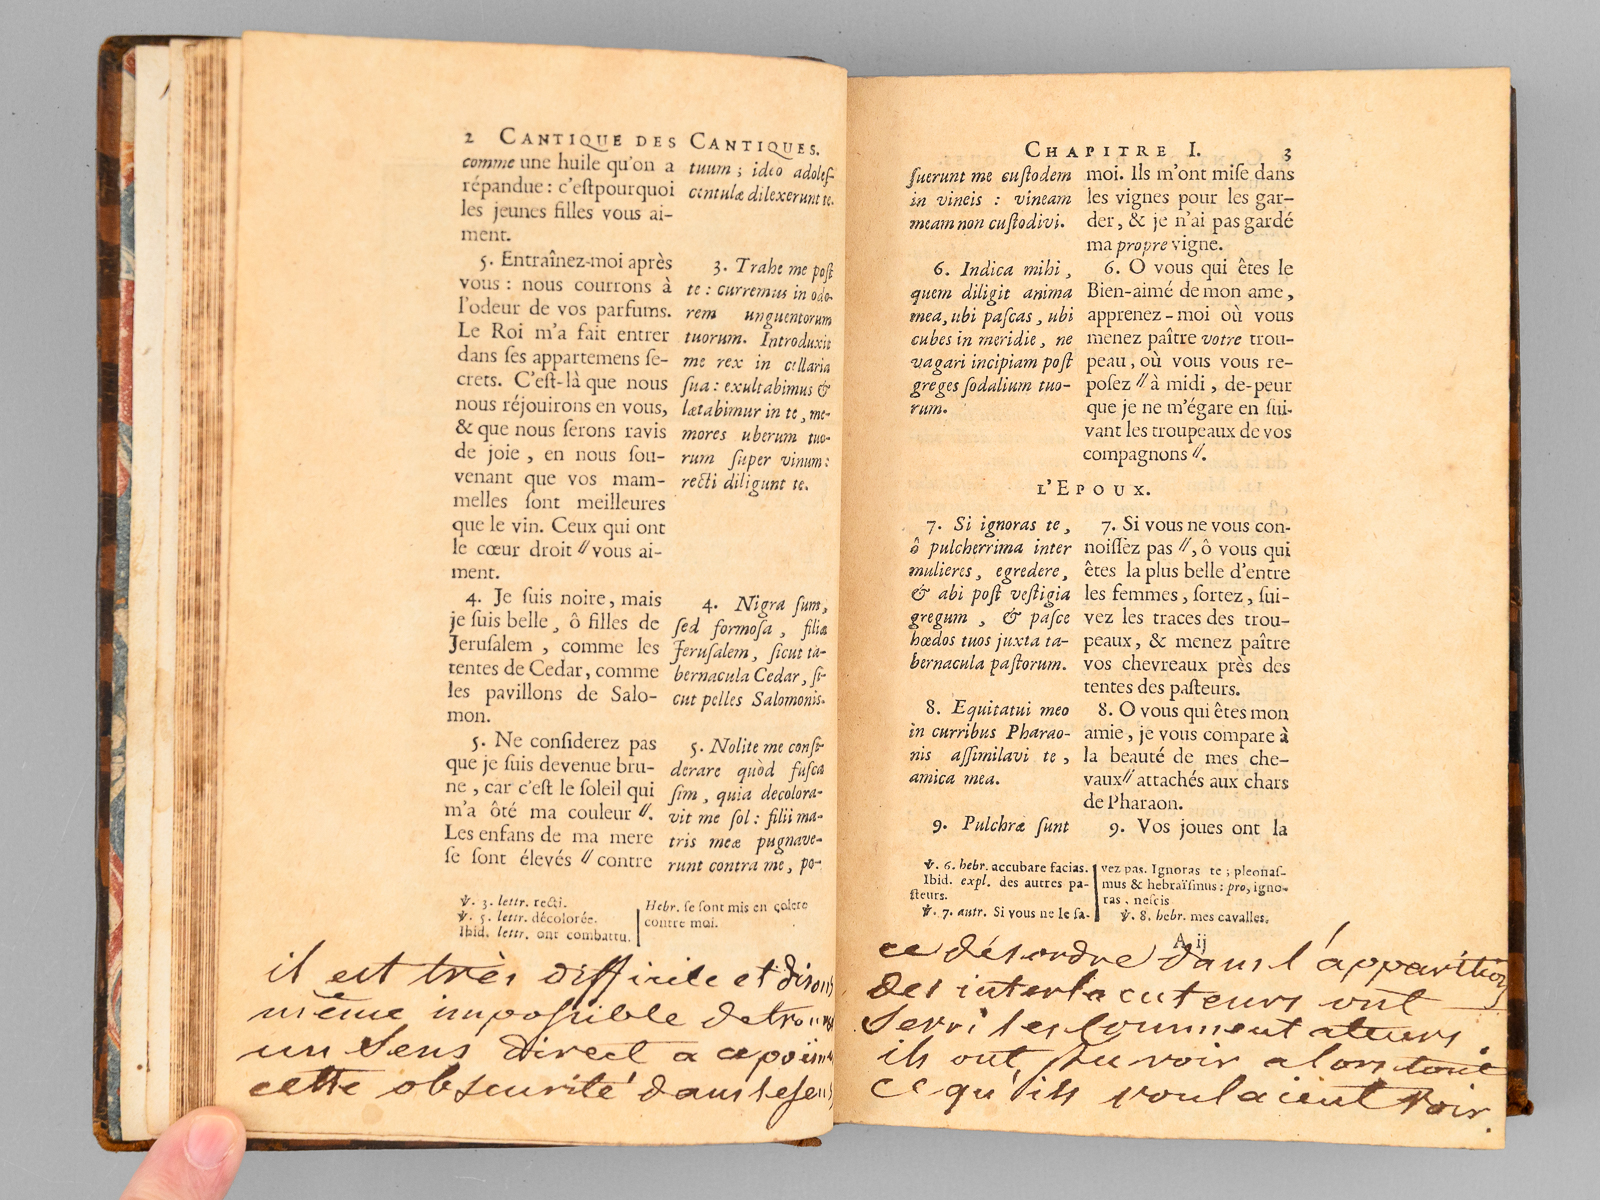 2 CANTIQUE DES CANTIQUES.
comme une huile qu'on a
répandue : c'eſtpourquoi
les jeunes filles vous ai-
ment.
5. Entraînez-moi après
vous : nous courrons à
l'odeur de vos parfums.
Le Roi m'a fait entrer
dans ſes appartemens ſe-
crets. C'eſt-là que nous
nous réjouirons en vous,
& que nous ſerons ravis
de joie, en nous ſou-
venant que vos mam-
melles ſont meilleures
que le vin. Ceux qui ont
le cœur droit // vous ai-
ment.
4. Je ſuis noire, mais
je ſuis belle, ô filles de
Jeruſalem, comme les
tentes de Cedar, comme
les pavillons de Salo-
mon.
5. Ne conſiderez pas
que je ſuis devenue bru-
ne, car c'eſt le ſoleil qui
m'a ôté ma couleur //.
Les enfans de ma mere
ſe ſont élevés // contre
tuum ; ideo adoleſ-
centulæ dilexerunt te.
3. Trahe me poſt
te : curremus in odo-
rem unguentorum
tuorum. Introduxit
me rex in cellaria
ſua : exultabimus &
lætabimur in te, me-
mores uberum tuo-
rum ſuper vinum :
recti diligunt te.
4. Nigra ſum,
ſed formoſa, filiæ
Jeruſalem, ſicut ta-
bernacula Cedar, ſi-
cut pelles Salomonis.
5. Nolite me conſi-
derare quòd fuſca
ſim, quia decolora-
vit me ſol : filii ma-
tris meæ pugnave-
runt contra me, po-
℣. 3. lettr. recti.
℣. 5. lettr. décolorée.
Ibid. lettr. ont combattu.
Hebr. ſe ſont mis en colere
contre moi.
il est très difficile et disons
même impossible de trouver
un sens direct a ce poëme
cette obscurité dans le sens
CHAPITRE I. 3
ſuerunt me cuſtodem
in vineis : vineam
meam non cuſtodivi.
6. Indica mihi,
quem diligit anima
mea, ubi paſcas, ubi
cubes in meridie, ne
vagari incipiam poſt
greges ſodalium tuo-
rum.
moi. Ils m'ont miſe dans
les vignes pour les gar-
der, & je n'ai pas gardé
ma propre vigne.
6. O vous qui êtes le
Bien-aimé de mon ame,
apprenez-moi où vous
menez paître votre trou-
peau, où vous vous re-
poſez // à midi, de-peur
que je ne m'égare en ſui-
vant les troupeaux de vos
compagnons //.
L'EPOUX.
7. Si ignoras te,
ô pulcherrima inter
mulieres, egredere,
& abi poſt veſtigia
gregum, & paſce
hœdos tuos juxta ta-
bernacula paſtorum.
8. Equitatui meo
in curribus Pharao-
nis aſſimilavi te,
amica mea.
9. Pulchræ ſunt
7. Si vous ne vous con-
noiſſez pas //, ô vous qui
êtes la plus belle d'entre
les femmes, ſortez, ſui-
vez les traces des trou-
peaux, & menez paître
vos chevreaux près des
tentes des paſteurs.
8. O vous qui êtes mon
amie, je vous compare à
la beauté de mes che-
vaux // attachés aux chars
de Pharaon.
9. Vos joues ont la
℣. 6. hebr. accubare facias.
Ibid. expl. des autres pa-
ſteurs.
℣. 7. autr. Si vous ne le ſa-
vez pas. Ignoras te ; pleonaſ-
mus & hebraïſmus : pro, igno-
ras, neſcis
℣. 8. hebr. mes cavalles.
A ij
ce désordre dans l'apparition
des interlocuteurs ont
servi les commentateurs.
ils ont pu voir alors tout
ce qu'ils voulaient voir.